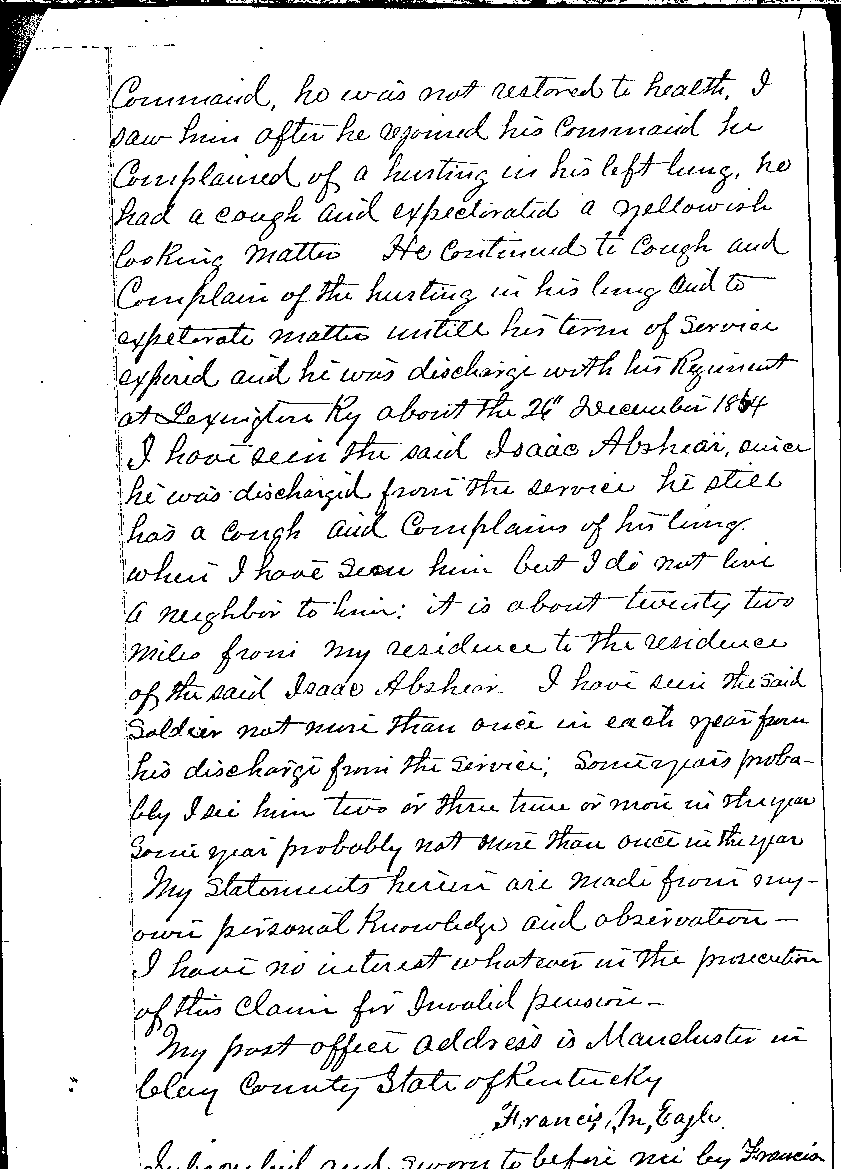 Command, he was not restored to health, I
saw him after he rejoined his Command he
Complained of a hurting in his left lung, he
had a cough and expectorated a yellowish
looking matter He continued to cough and
Complain of the hurting in his lung and to
expetorate matter untill his term of Service
expired and he was discharge with his Regiment
at Lexington Ky about the 26" December 1864
I have seen the said Isaac Abshear, since
he was discharged from the service he still
has a cough and Complains of his lung
when I have Seen him but I do not live
a neighbor to him: it is about twenty two
miles from my residence to the residence
of the said Isaac Abshear. I have seen the said
Soldier not more than once in each year from
his discharge from the Service; Some years proba-
bly I see him two or three time or more in the year
Some year probably not more than once in the year
My Statements herein are made from my-
own personal Knowledge and observation —
I have no interest whatever in the prosecution
of this Claim for Invalid pension —
My post office address is Manchester in
Clay County State of Kentucky
Francis, M, Eagle.
Subscribed and sworn to before me by Francis